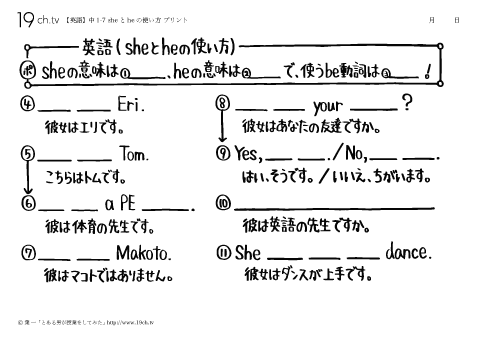 19ch.tv 【英語】中1-7 she と he の使い方 プリント 月 日
英語(sheとheの使い方)
ポ sheの意味は①____、heの意味は②____で、使うbe動詞は③____!
④____ ____ Eri.
彼女はエリです。
⑤____ ____ Tom.
こちらはトムです。
⑥____ ____ a PE ____.
彼は体育の先生です。
⑦____ ____ Makoto.
彼はマコトではありません。
⑧____ ____ your ____?
彼女はあなたの友達ですか。
⑨Yes, ____ ____./No, ____ ____.
はい、そうです。/いいえ、ちがいます。
⑩____
彼は英語の先生ですか。
⑪She ____ ____ ____ dance.
彼女はダンスが上手です。
© 葉一「とある男が授業をしてみた」http://www.19ch.tv